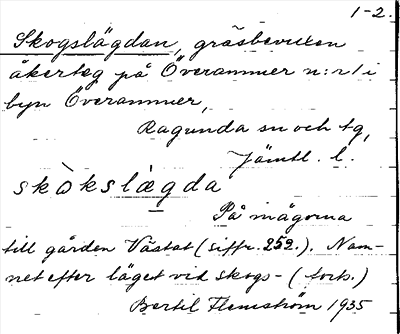 1-2.
Skogslägdan, gräsbevuxen
åkerteg på Överammer n:r 1 i
byn Överammer,
Ragunda sn och tg,
Jämtl. l.
skò̀kslægda
På inägorna
till gården Västat (siffr. 252.). Nam-
net efter läget vid skogs- (forts.)
Bertil Flemström 1935